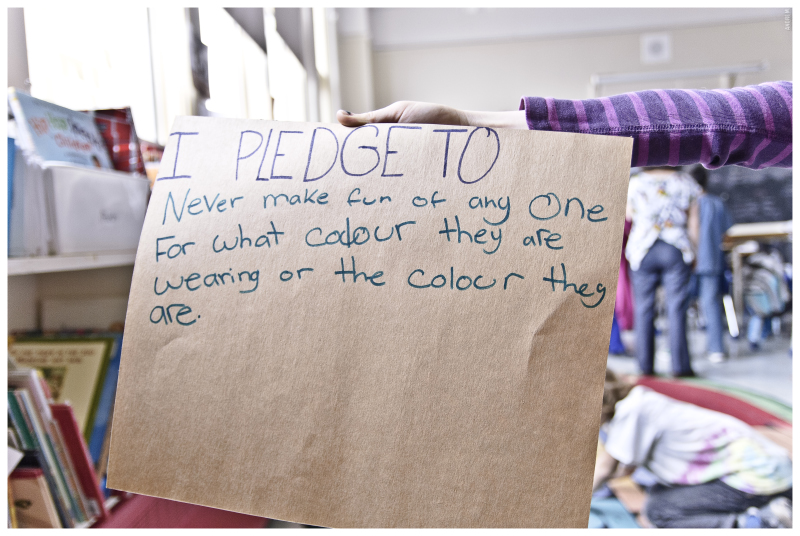 I PLEDGE TO
Never make fun of any One
For what colour they are
wearing or the colour they
are.